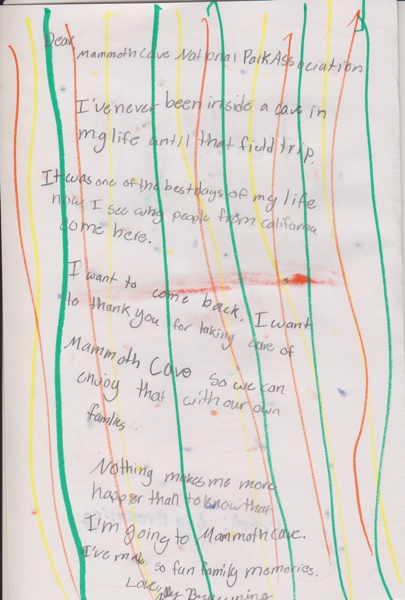 Dear
Mammoth Cave National Park Association
I've never been inside a cave in
my life until that field trip.
It was one of the best days of my life
now I see why people from california
come here.
I want to come back. I want
to thank you for taking care of
Mammoth Cave so we can
enjoy that with our own
families.
Nothing makes me more
happer than to know that
I'm going to Mammoth cave.
I've made so fun family memories.
Love,